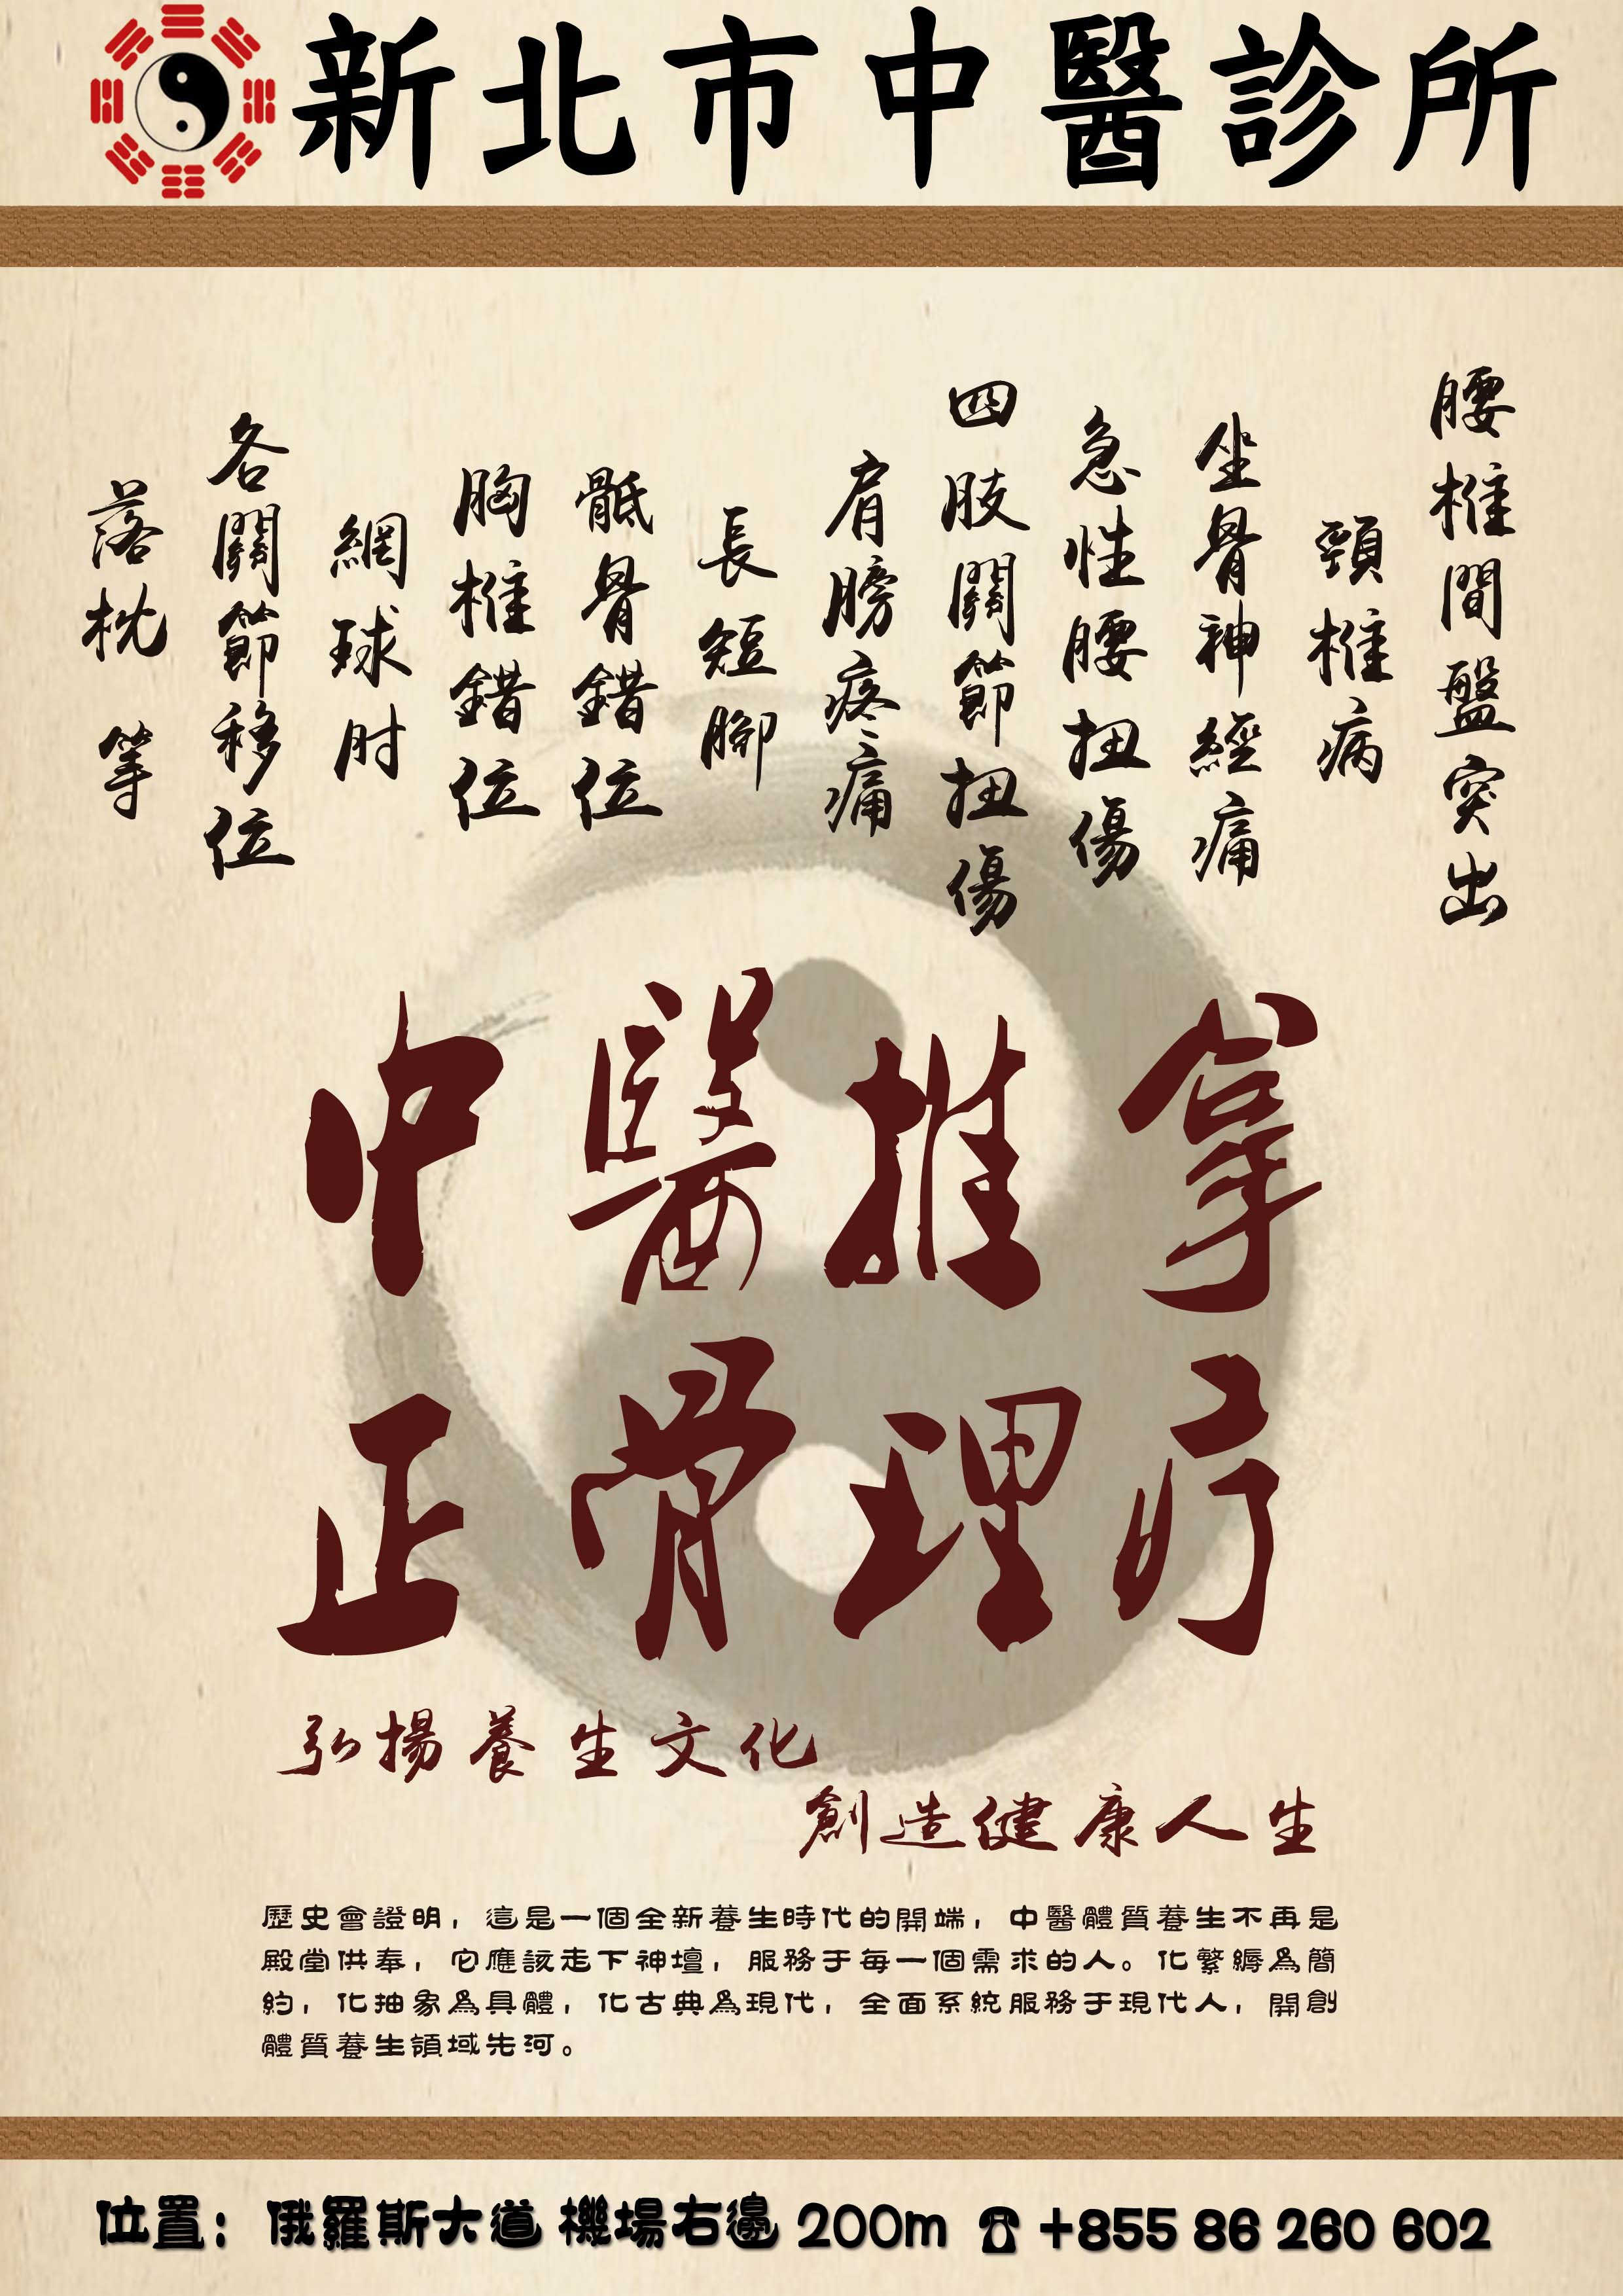 新北市中醫診所
腰椎間盤突出
頸椎病
坐骨神經痛
急性腰扭傷
四肢關節扭傷
肩膀疼痛
長短腳
骶骨錯位
胸椎錯位
網球肘
各關節移位
落枕 等
中醫推拿
正骨理疗
弘揚養生文化
創造健康人生
歷史會證明，這是一個全新養生時代的開端，中醫體質養生不再是
殿堂供奉，它應該走下神壇，服務于每一個需求的人。化繁縟為簡
約，化抽象為具體，化古典為現代，全面系統服務于現代人，開創
體質養生領域先河。
位置：俄羅斯大道 機場右邊 200m ☎ +855 86 260 602